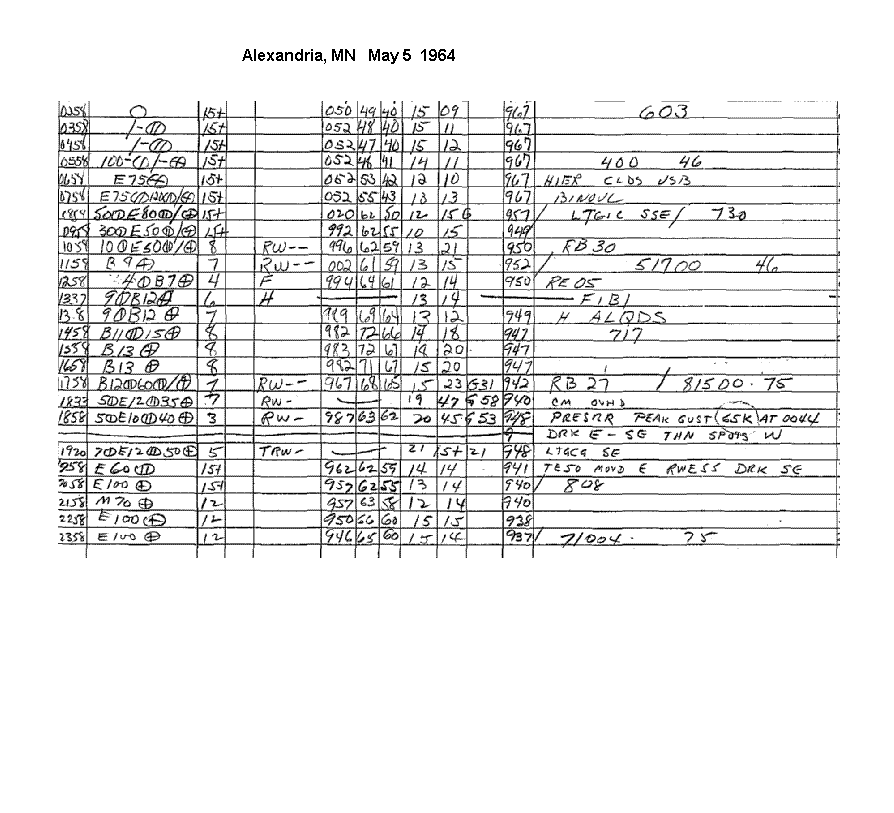 Alexandria, MN May 5 1964
0258 ○ 15+ 050 49 40 15 09 967 603
0358 1-⦶ 15+ 052 48 40 15 11 967
0458 1-⦶ 15+ 052 47 40 15 12 967
0558 100-⦶/-⊕ 15+ 052 48 41 14 11 967 400 46
0658 E75⊕ 15+ 052 53 42 12 10 967 HIER CLDS VSB
0758 15+ 052 55 43 13 13 967 BINOVC
50⦶E80⦶/⊕ 15+ 020 62 50 12 15G 957 / LTGIC SSE/ 730
0958 30⦶E50⦶/⊕ 15+ 992 62 55 10 15 949
1058 10⦶E50⦶/⊕ 8 RW-- 996 62 59 13 21 950 / RB30
1158 B9⊕ 7 RW-- 002 61 59 13 15 952 / 51700 46
1258 4⦶B7⊕ 4 F 994 64 61 12 14 950 RE05
1337 9⦶B12⊕ 6 H 13 14 FIBI
9⦶B12⊕ 7 989 69 64 13 12 949 H ALQDS
1458 B11⦶15⊕ 8 982 72 66 14 18 947 717
1558 B13⊕ 8 983 72 67 14 20 947
1658 B13⊕ 8 982 71 67 15 20 947
1758 B12⦶60⦶/⊕ 7 RW-- 967 68 65 15 23 G31 942 RB27 / 81500 75
1833 5⦶E12⦶35⊕ 7 RW- 19 47 G58 940 CM OVHD
1858 5⦶E10⦶40⊕ 3 RW- 987 63 62 20 45 G53 948 PRESRR PEAK GUST 65K AT 0044
DRK E-SE THN SPOTS W
1920 7⦶E12⦶50⊕ 5 TRW- 21 15+21 948 LTGCG SE
E60⦶ 15+ 962 62 59 14 14 941 TE50 MOVD E RWESS DRK SE
2058 E100⊕ 15+ 957 62 55 13 14 940 / 808
2158 M70⊕ 12 957 63 58 12 14 940
2258 E100⊕ 12 950 66 60 15 15 938
2358 E100⊕ 12 946 65 60 15 14 937 / 71004 75